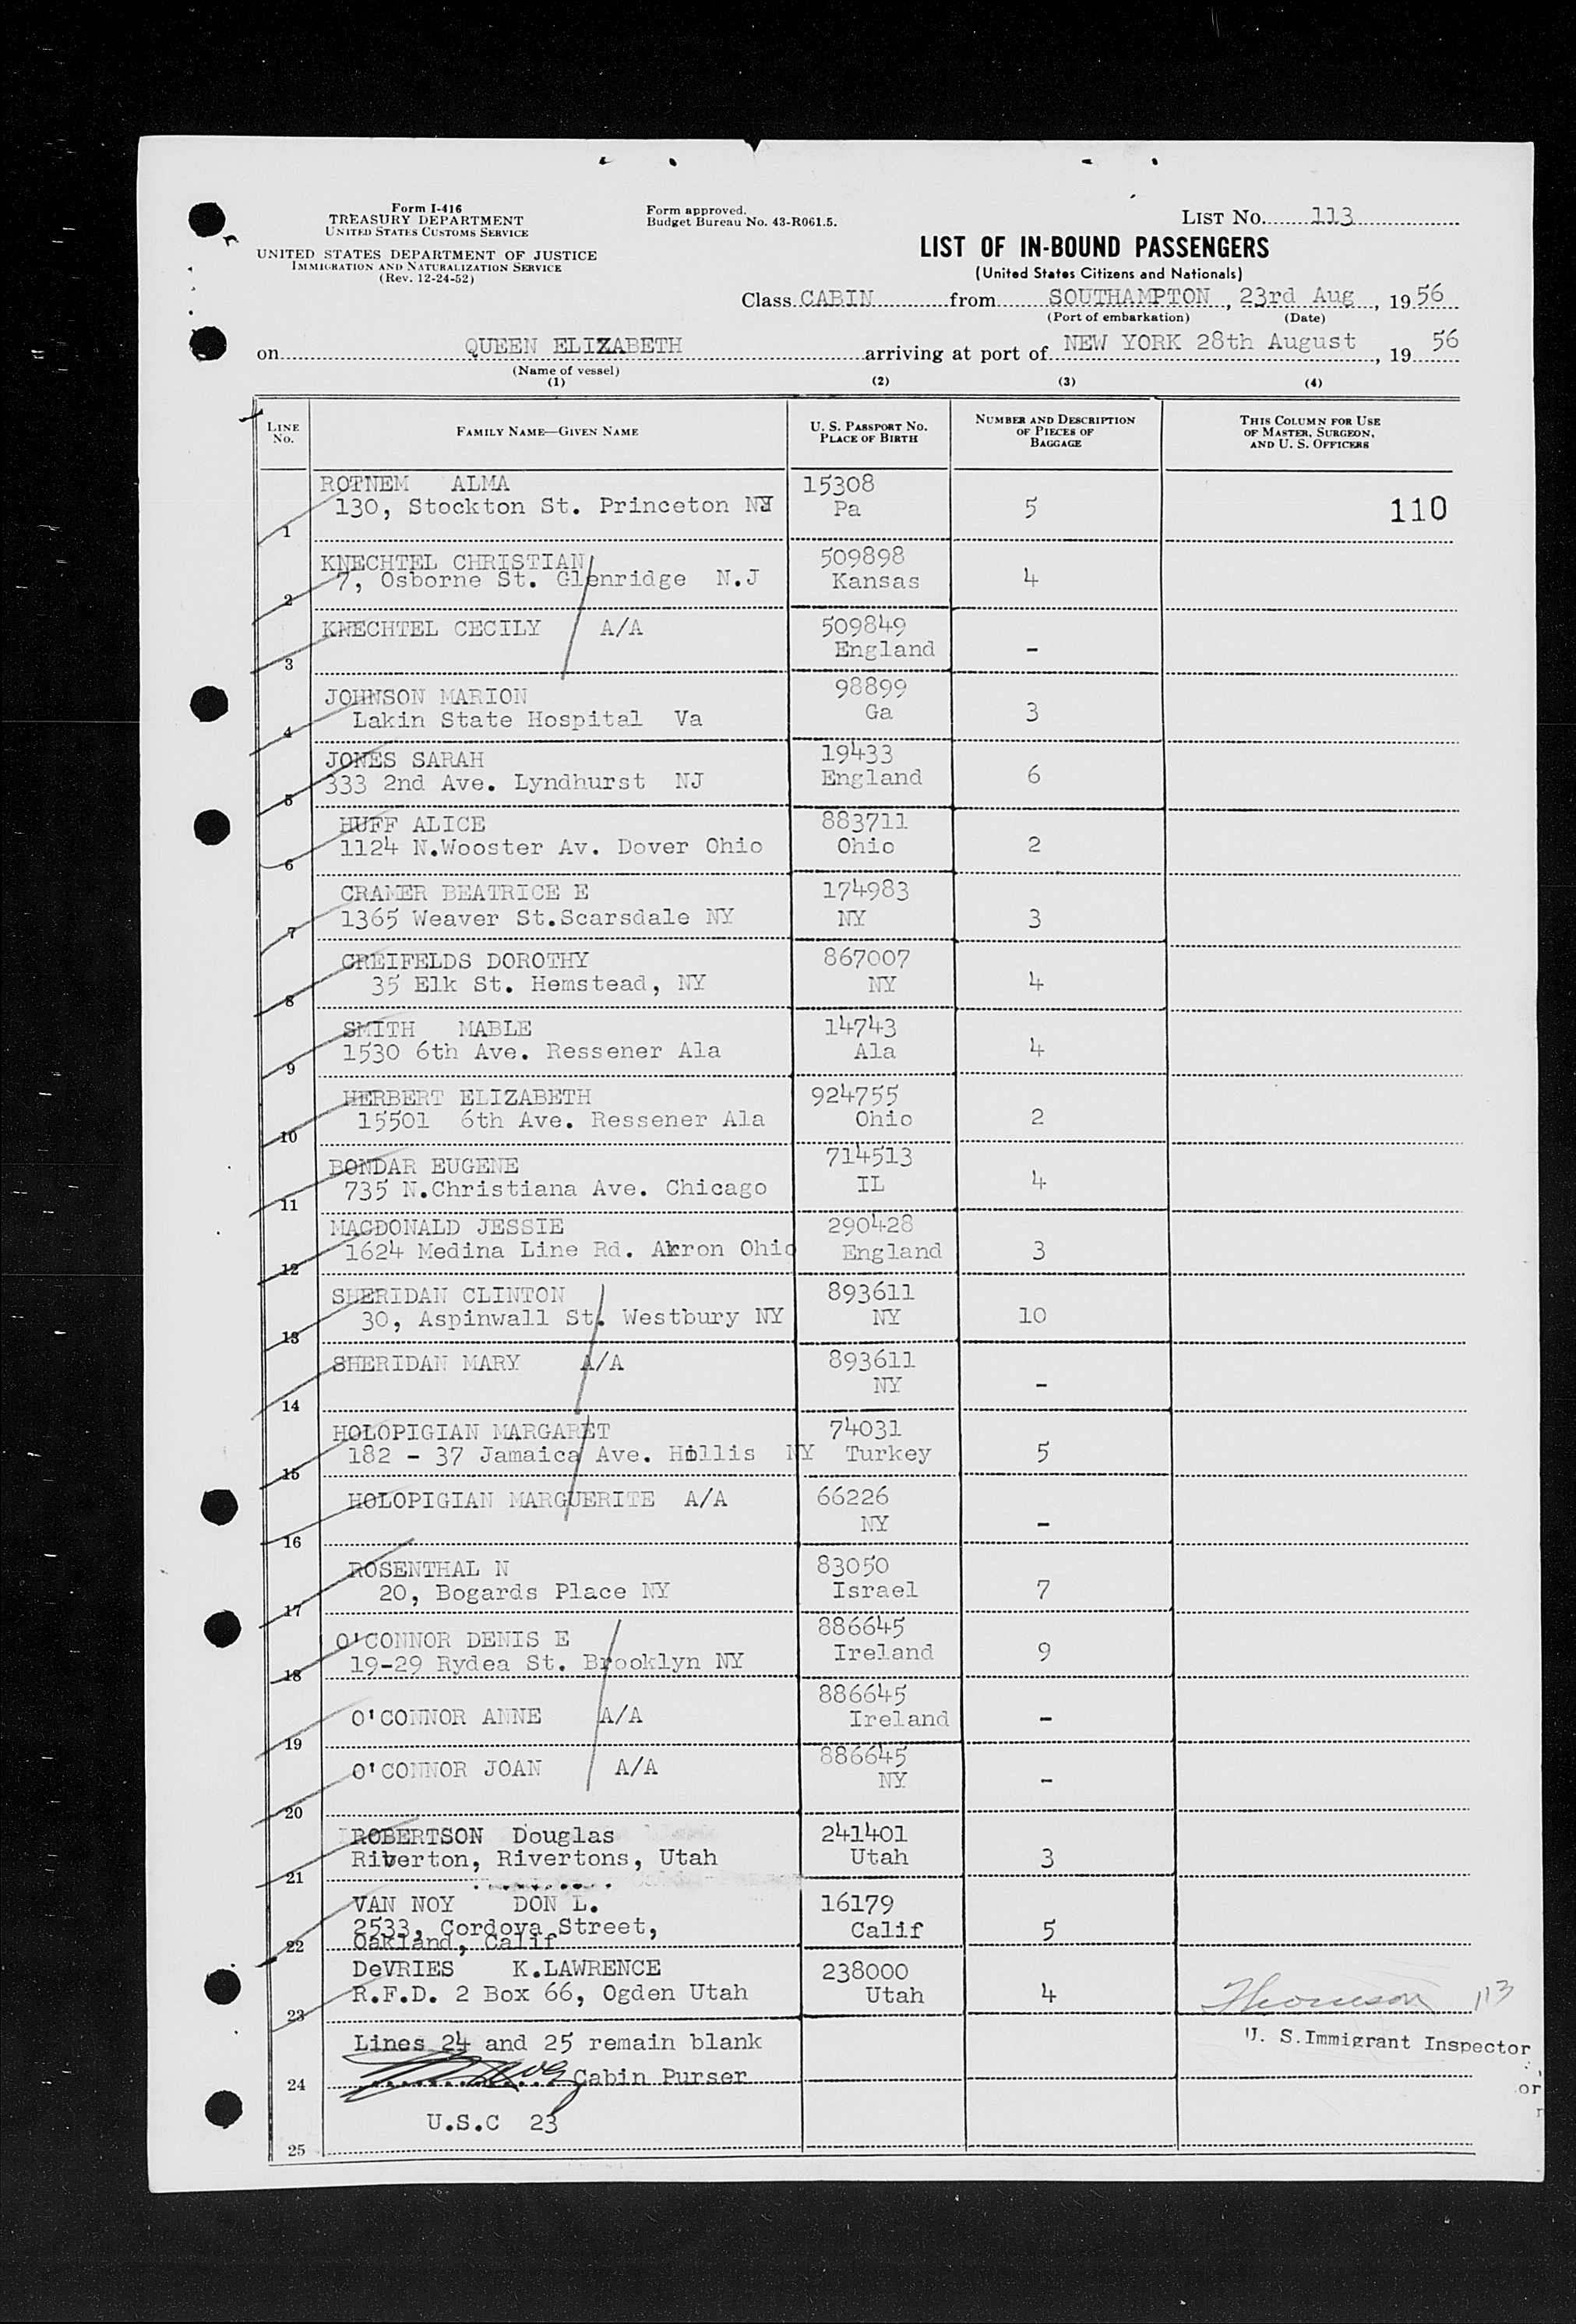 Form I-416
TREASURY DEPARTMENT
UNITED STATES CUSTOMS SERVICE
UNITED STATES DEPARTMENT OF JUSTICE
IMMIGRATION AND NATURALIZATION SERVICE
(Rev. 12-24-52)
Form approved.
Budget Bureau No. 43-R061.5.
LIST No. 113
LIST OF IN-BOUND PASSENGERS
(United States Citizens and Nationals)
Class CABIN from SOUTHAMPTON, 23rd Aug, 1956
(Port of embarkation) (Date)
on QUEEN ELIZABETH arriving at port of NEW YORK 28th August, 19 56
(Name of vessel)
(1) (2) (3) (4)
LINE No. FAMILY NAME—GIVEN NAME U. S. PASSPORT NO. PLACE OF BIRTH NUMBER AND DESCRIPTION OF PIECES OF BAGGAGE THIS COLUMN FOR USE OF MASTER, SURGEON, AND U. S. OFFICERS
ROTNEM ALMA 15308
1 130, Stockton St. Princeton NJ Pa 5 110
KNECHTEL CHRISTIAN 509898
2 7, Osborne St. Glenridge N.J Kansas 4
KNECHTEL CECILY A/A 509849
3 England -
JOHNSON MARION 98899
4 Lakin State Hospital Va Ga 3
JONES SARAH 19433
5 333 2nd Ave. Lyndhurst NJ England 6
HUFF ALICE 883711
6 1124 N.Wooster Av. Dover Ohio Ohio 2
CRAMER BEATRICE E 174983
7 1365 Weaver St.Scarsdale NY NY 3
GREIFELDS DOROTHY 867007
8 35 Elk St. Hemstead, NY NY 4
SMITH MABLE 14743
9 1530 6th Ave. Ressener Ala Ala 4
HERBERT ELIZABETH 924755
10 15501 6th Ave. Ressener Ala Ohio 2
BONDAR EUGENE 714513
11 735 N.Christiana Ave. Chicago IL 4
MACDONALD JESSIE 290428
12 1624 Medina Line Rd. Akron Ohio England 3
SHERIDAN CLINTON 893611
13 30, Aspinwall St. Westbury NY NY 10
SHERIDAN MARY A/A 893611
14 NY -
HOLOPIGIAN MARGARET 74031
15 182 - 37 Jamaica Ave. Hollis NY Turkey 5
HOLOPIGIAN MARGUERITE A/A 66226
16 NY -
ROSENTHAL N 83050
17 20, Bogards Place NY Israel 7
O'CONNOR DENIS E 886645
18 19-29 Rydea St. Brooklyn NY Ireland 9
O'CONNOR ANNE A/A 886645
19 Ireland -
O'CONNOR JOAN A/A 886645
20 NY -
ROBERTSON Douglas 241401
21 Riverton, Rivertons, Utah Utah 3
VAN NOY DON L. 16179
2533, Cordova Street, Calif 5
22 Oakland, Calif
DeVRIES K.LAWRENCE 238000
23 R.F.D. 2 Box 66, Ogden Utah Utah 4 Thomson 113
U. S. Immigrant Inspector
Lines 24 and 25 remain blank
24 Cabin Purser
or
U.S.C 23
25